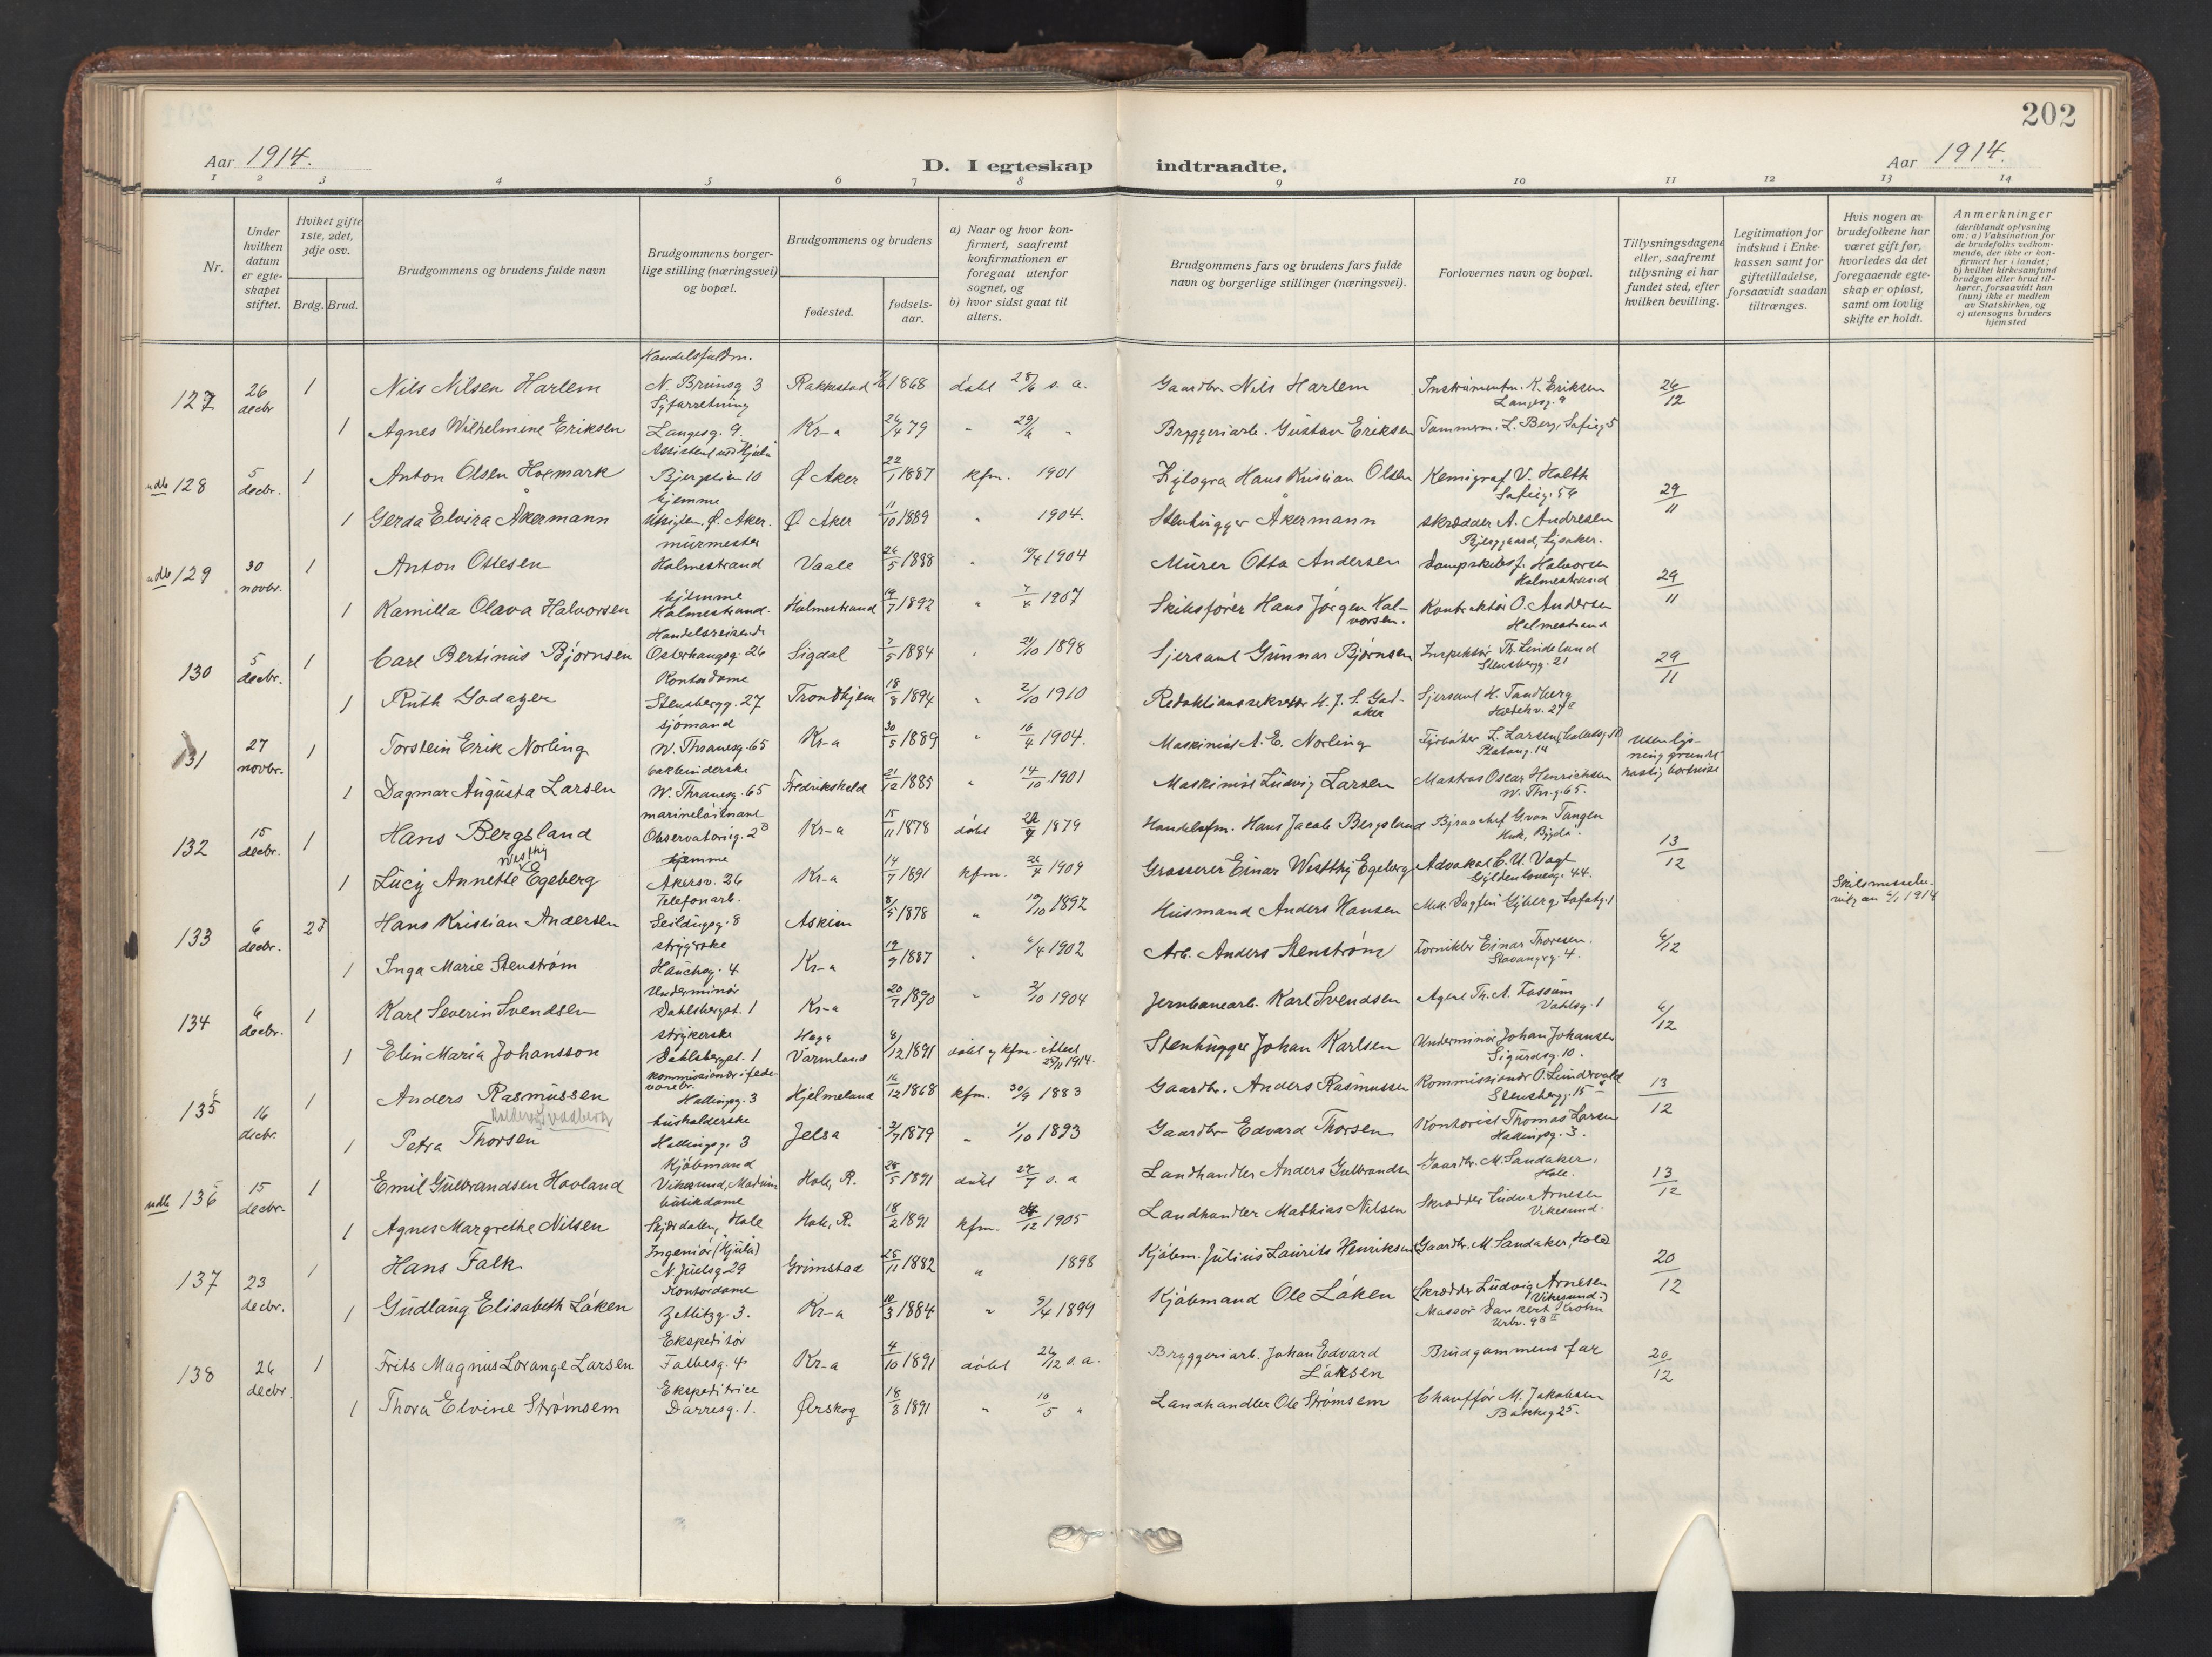 202
Aar 1914.
D. I egteskap indtraadte.
Aar 1914.
1 2 3 4 5 6 7 8 9 10 11 12 13 14
Nr.
Under hvilken datum er egteskapet stiftet.
Hviket gifte 1ste, 2det, 3dje osv.
Brdg. Brud.
Brudgommens og brudens fulde navn
Brudgommens borgerlige stilling (næringsvei) og bopæl.
Brudgommens og brudens
fødested.
fødsels-aar.
a) Naar og hvor konfirmert, saafremt konfirmationen er foregaat utenfor sognet, og
b) hvor sidst gaat til alters.
Brudgommens fars og brudens fars fulde navn og borgerlige stillinger (næringsvei).
Forlovernes navn og bopæl.
Tillysningsdagene eller, saafremt tillysning ei har fundet sted, efter hvilken bevilling.
Legitimation for indskud i Enkekassen samt for giftetilladelse, forsaavidt saadan tiltrænges.
Hvis nogen av brudefolkene har været gift før, hvorledes da det foregaaende egteskap er opløst, samt om lovlig skifte er holdt.
Anmerkninger (deriblandt oplysning om: a) Vaksination for de brudefolks vedkommende, der ikke er konfirmert her i landet; b) hvilket kirkesamfund brudgom eller brud tilhører, forsaavidt han (hun) ikke er medlem av Statskirken, og c) utensogns bruders hjemsted
Handelsfuldm.
127 26 decbr 1 Nils Nilsen Harlem N. Brunsg 3 Rakkestad 1868 døbt 28/6 s. a. Gaardbr. Nils Harlem Instrumentm. K. Eriksen Langesg. 9 26/12
Syforretning
1 Agnes Wilhelmine Eriksen Langesg. 9. Kr-a 26/4 79 " 29/6 " Bryggeriarb. Gustav Eriksen Tømmerm. L. Berg, Sofieg 5
128 5 decbr. 1 Anton Olsen Hoxmark Bjerglien 10 Ø Aker 22/1 1887 kfm. 1901 Xylogra Hans Kristian Olsen Kemigraf V. Holth Sofieg. 54 29/11
hjemme
1 Gerda Elvira Åkermann Utsigten, Ø. Aker. Ø Aker 11/10 1889 " 1904. Stenhugger Åkermann skrædder A. Andresen Bjerggaard, Lysaker.
murmester
129 30 novbr. 1 Anton Ottesen Holmestrand Vaale 26/5 1888 " 1904 Murer Otto Andersen Dampskibsf. Halvorsen Holmestrand 29/11
hjemme
1 Kamilla Olava Halvorsen Holmestrand. Holmestrand 14/7 1892 " 7/4 1907 Skibsfører Hans Jørgen Halvorsen. Kontraktør O. Andersen Holmestrand
Handelsreisende
130 5 decbr. 1 Carl Bertinus Bjørnsen Osterhausg. 26 Sigdal 7/5 1884 " 21/10 1898 Sjersant Gunnar Bjørnsen Inspektør Th. Lindeland Stensbergg. 21 29/11
Kontordame
1 Ruth Godager Stensbergg. 27 Trondhjem 18/8 1894 " 2/10 1910 Redaktionssekretær H. J. S. Godaker Sjersant H. Tandberg
sjømand
131 27 novbr. 1 Torstein Erik Norling W. Thranesg. 65 Kr-a 30/5 1889 " 16/4 1904. Maskinist A. E. Norling Fyrbøter L. Larsen, Platoug. 14
1 Dagmar Augusta Larsen W. Thranesg. 65 Fredrikshald 21/12 1885 " 14/10 1901 Maskinist Ludvig Larsen Matros Oscar Henrichsen W. Thr.g. 65.
marineløitnant
132 15 decbr. 1 Hans Bergsland Observatorieg. 2B Kr-a 15/11 1878 døbt 1879 Handelsfm. Hans Jacob Bergsland Byraachef G. von Tangen Huk, Bygdø. 13/12
hjemme
1 Lucy Annette Westby Egeberg Akersv. 26 Kr-a 14/7 1891 kfm. 26/4 1909 Grosserer Einar Westby Egeberg Advokat C. U. Vogt Gyldenløvesg. 44.
Telefonarb.
133 6 decbr. 2d Hans Kristian Andersen Seildugsg. 8 Askim 8/5 1878 " 1892 Husmand Anders Hansen 6/12
1 Inga Marie Stenstrøm Hauchsg. 4 Kr-a 19/9 1887 " 6/4 1902 Arb. Anders Stenstrøm Fornikler Einar Thoresen. Stavangerg. 4.
Underminør
134 6 decbr. 1 Karl Severin Svendsen Dahlsbergst. 1 Kr-a 20/7 1890 " 2/10 1904 Jernbanearb. Karl Svendsen Agent Th. A. Fossum Vahlsg. 1 6/12
strykerske
1 Elin Maria Johansson Dahlsbergst. 1 Värmland 8/12 1891 Stenhugger Johan Karlsen Underminør Johan Johansen Sigurdsg. 10.
135 16 decbr. 1 Anders Rasmussen Hallingsg. 3 Hjelmeland 16/12 1868 kfm. 30/9 1883 Gaardbr. Anders Rasmussen Kommissionær O. Lundervold Stensbergg. 15 13/12
husholderske
1 Petra Thorsen Hallingsg. 3 Jelsa 2/7 1879 " 1/10 1893 Gaardbr. Edvard Thorsen Kontorist Thomas Larsen Hallingsg. 3.
Kjøbmand
136 15 decbr. 1 Emil Gulbrandsen Hovland Vikesund, Modum Hole, R. 28/5 1891 døbt 27/7 s. a Landhandler Anders Gulbrandsen Gaardbr. M. Sandaker, Hole. 13/12
butikdame
1 Agnes Margrethe Nilsen Skjærdalen, Hole Hole, R. 18/2 1891 kfm. 1905 Landhandler Mathias Nilsen Skrædder Ludv. Arnesen Vikesund.
Ingeniør
137 23 decbr. 1 Hans Falk N. Juelsg 29 Grimstad 25/11 1882 " 1898 Kjøbm. Julius Laurits Henriksen Gaardbr. M. Sandaker, Hole 20/12
Kontordame
1 Gudlaug Elisabeth Løken Zetlitzg. 3. Kr-a 10/3 1884 " 9/4 1899 Kjøbmand Ole Løken Skrædder Ludvig Arnesen Vikesund. Massør Dankert Krohn
Ekspeditør
138 26 decbr. 1 Frits Magnus Lorange Larsen Falbesg. 4 Kr-a 4/10 1891 døbt 26/12 s. a. Bryggeriarb. Johan Edvard Brudgommens far 20/12
Ekspeditrice
1 Thora Elvine Strømsem Darresg. 1. Ørskog 18/3 1891 " 10/5 " Landhandler Ole Strømsem Chauffør M. Jakobsen Bakkeg 25.